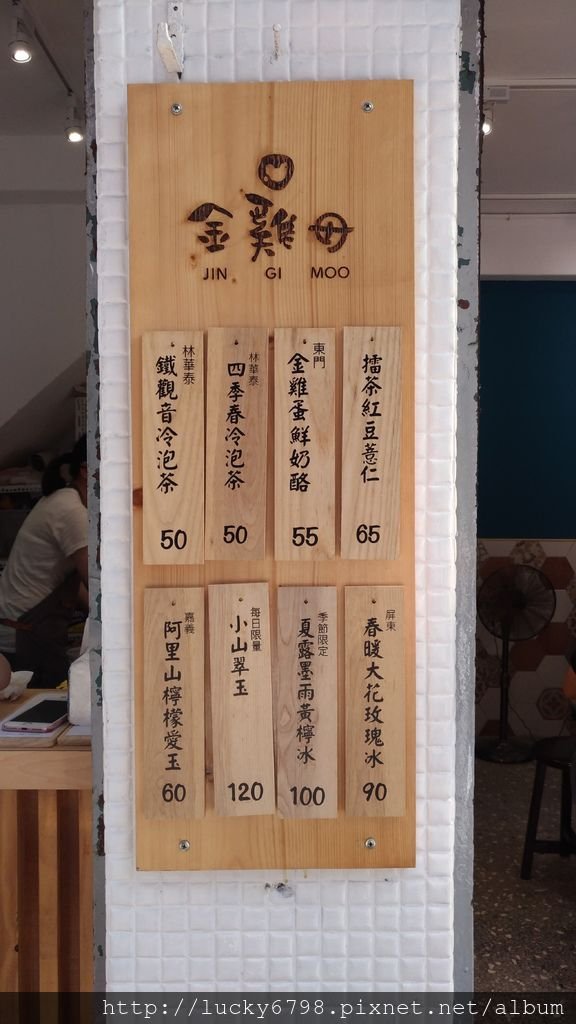 金雞母
JIN GI MOO
東門
金雞蛋鮮奶酪
55
擂茶紅豆薏仁
65
林華泰
四季春冷泡茶
50
林華泰
鐵觀音冷泡茶
50
屏東
春暖大花玫瑰冰
90
季節限定
夏露墨雨黃檸冰
100
每日限量
小山翠玉
120
嘉義
阿里山檸檬愛玉
60
http://lucky6798.pixnet.net/album